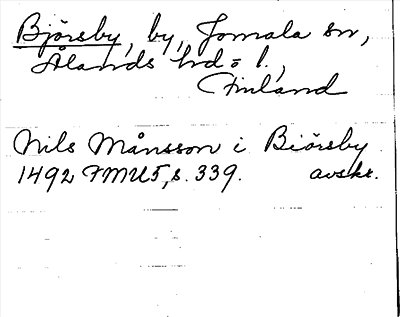 Björsby, by, Jomala sn,
Ålands hd o l.,
Finland
Nils Månsson i Biörsby
1492 FMU5, s. 339. avskr.